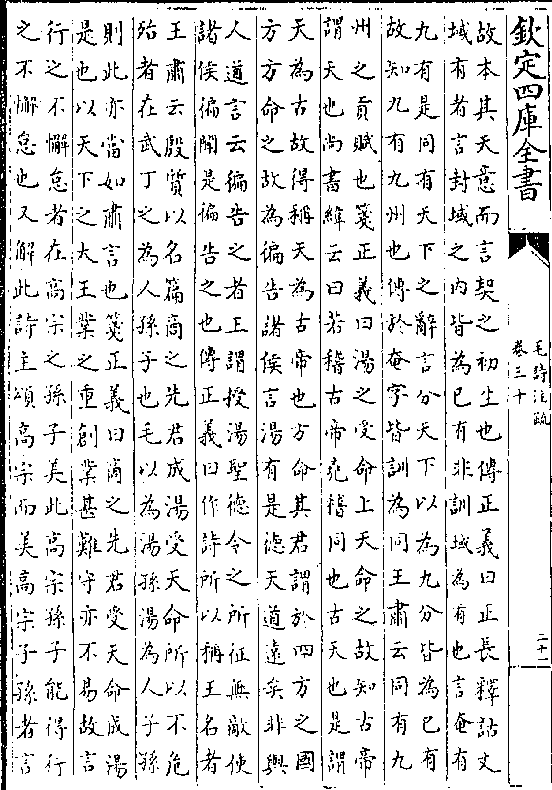 欽定四庫全書
毛詩注疏
卷三十
二十一
故本其天意而言契之初生也傳正義曰正長釋詁文
域有者言封域之內皆為已有非訓域為有也言奄有
九有是同有天下之辭言分天下以為九分皆為已有
故知九有九州也傳於奄字皆訓為同王肅云同有九
州之貢賦也箋正義曰湯之受命上天命之故知古帝
謂天也尚書緯云曰若稽古帝堯稽同也古天也是謂
天為古故得稱天為古帝也方命其君謂於四方之國
方方命之故為徧告諸侯言湯有是德天道遠矣非與
人道言云徧告之者正謂授湯聖德令之所征無敵使
諸侯徧聞是徧告之也傳正義曰作詩所以稱王名者
王肅云殷質以名篇商之先君成湯受天命所以不危
殆者在武丁之為人孫子也毛以為湯孫湯為人子孫
則此亦當如肅言也箋正義曰商之先君受天命成湯
是也以天下之大王業之重創業甚難守亦不易故言
行之不懈怠者在高宗之孫子美此高宗孫子能得行
之不懈怠也又解此詩主頌高宗而美高宗子孫者言